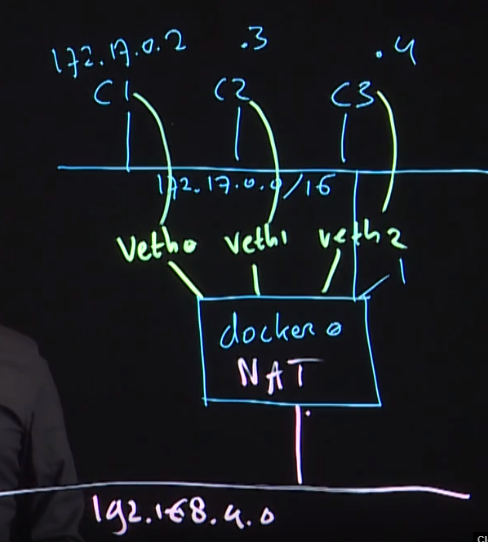 172.17.0.2 .3 .4
C1 C2 C3
172.17.0.0/16
Veth0 veth1 veth2
1
docker0
NAT
192.168.4.0
CI